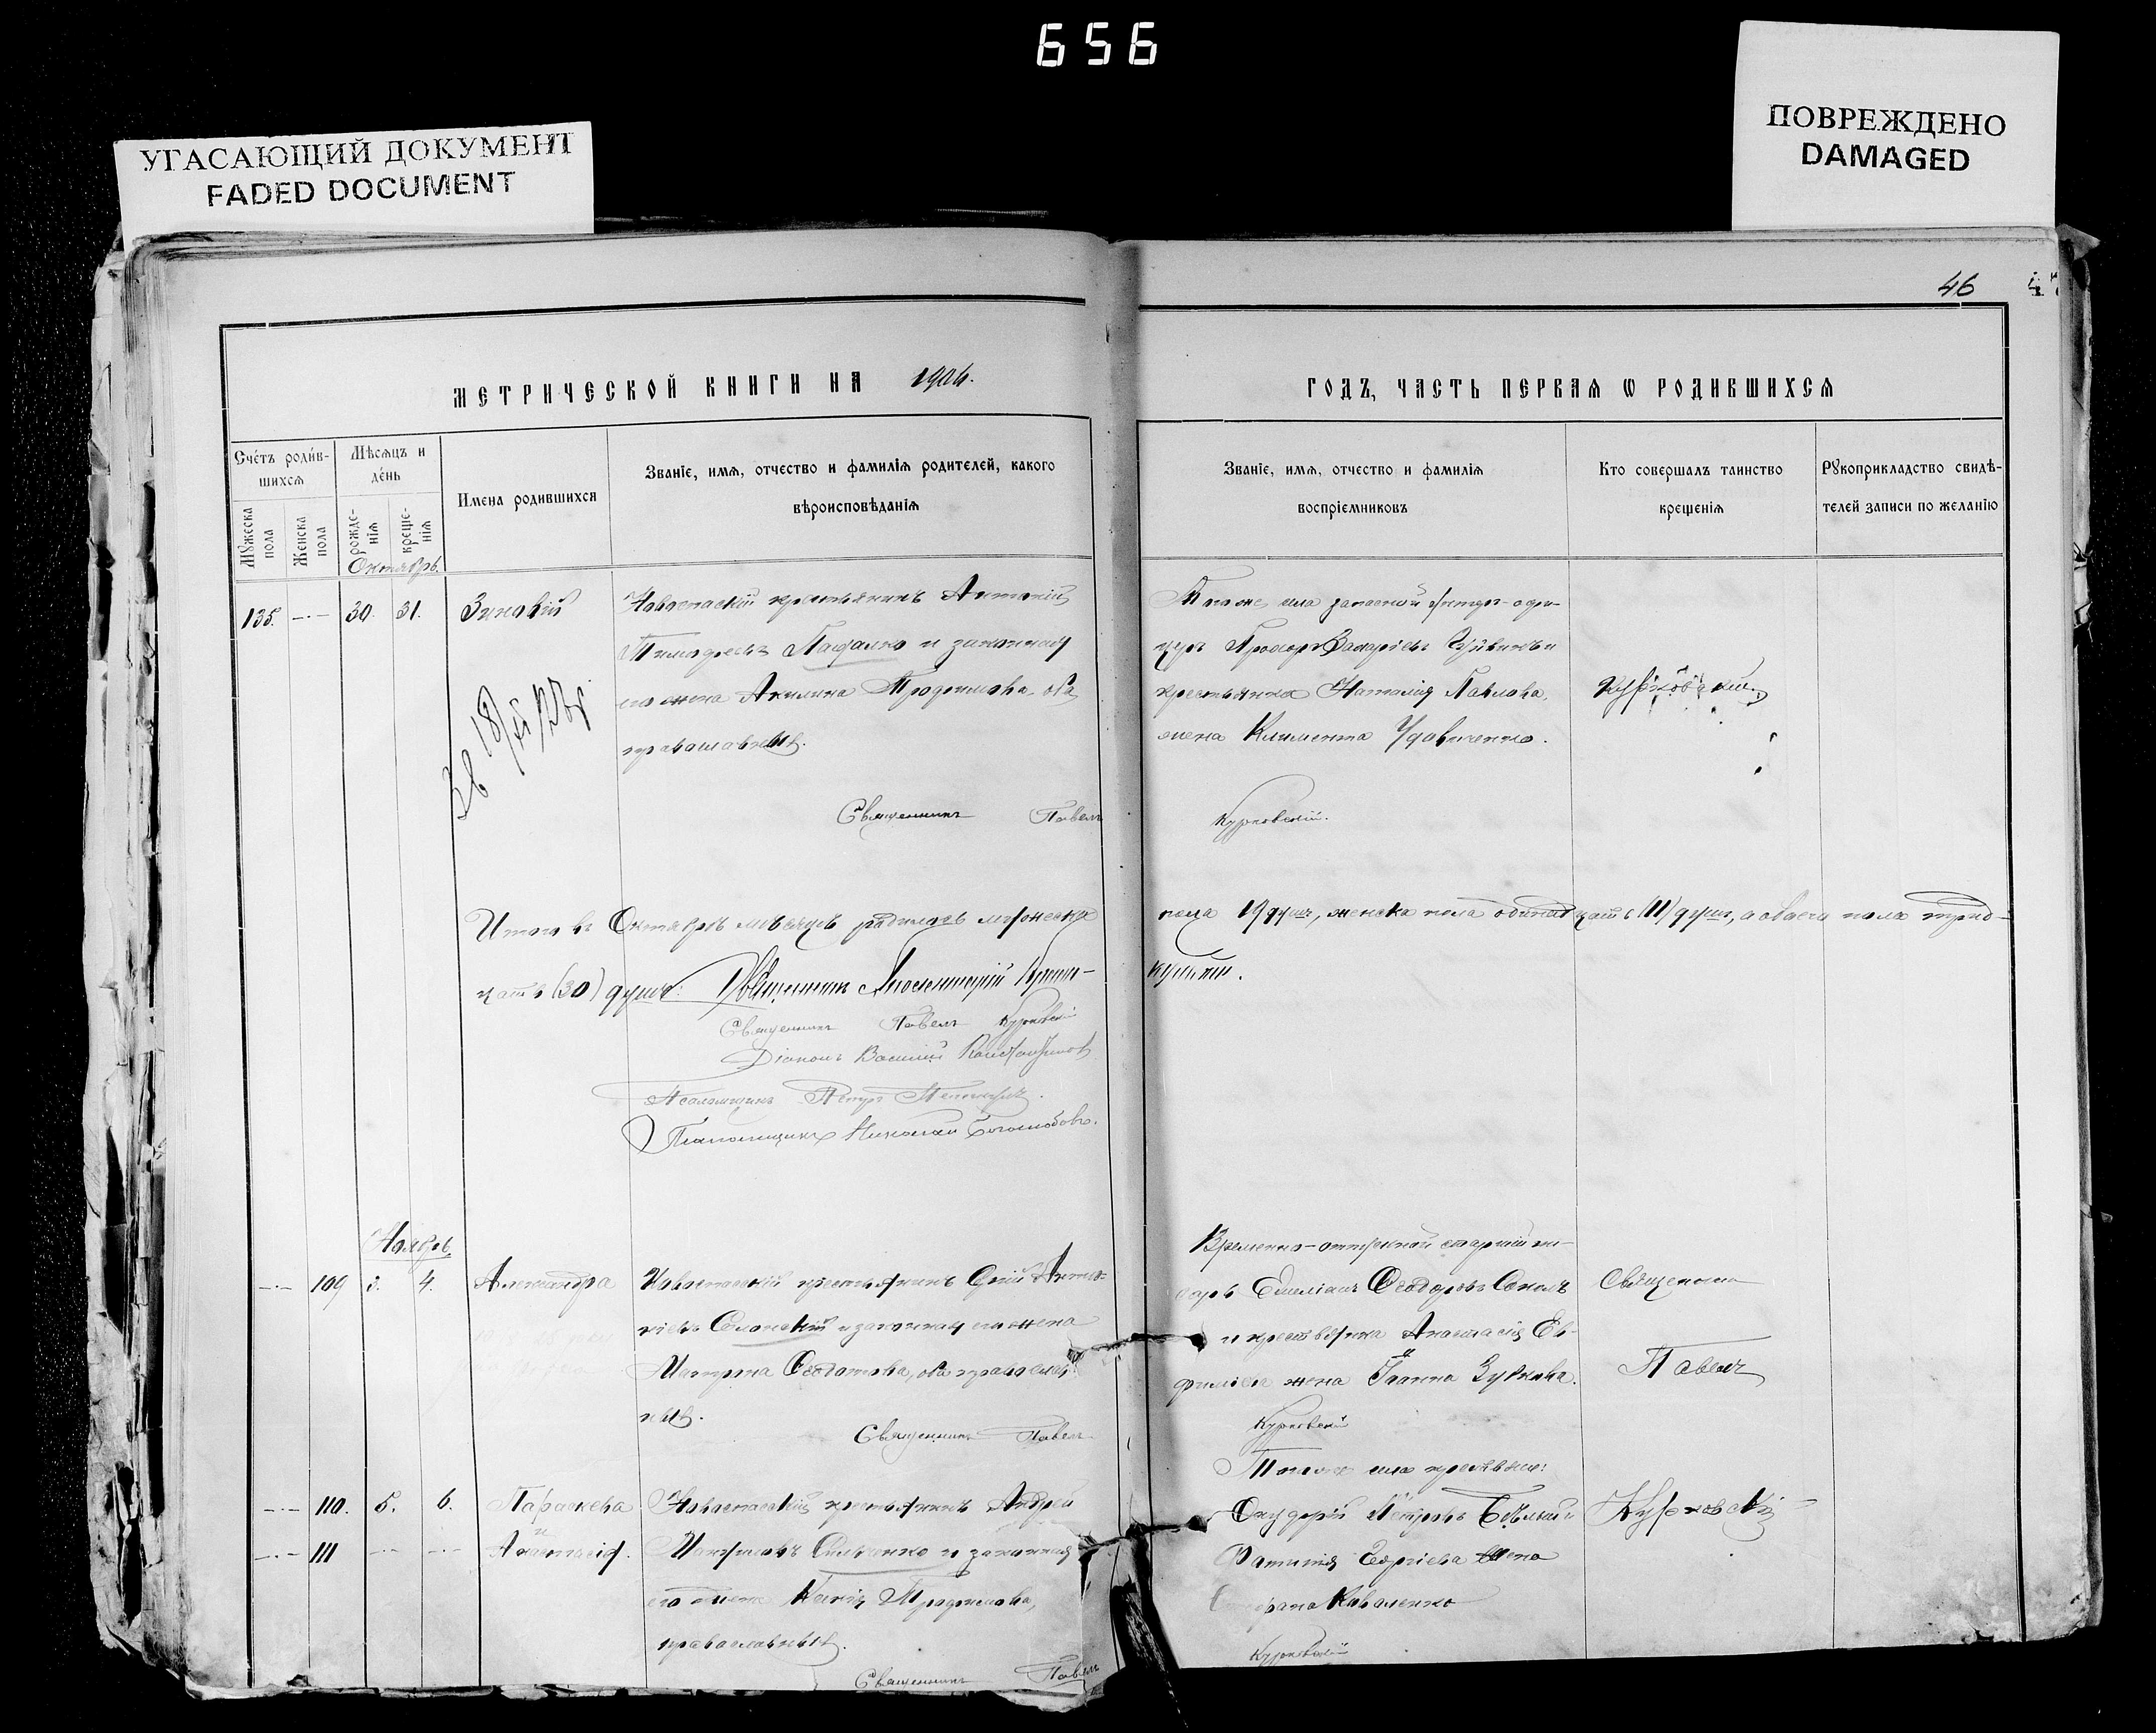 656
УГАСАЮЩИЙ ДОКУМЕНТ
FADED DOCUMENT
ПОВРЕЖДЕНО
DAMAGED
46
47
МЕТРИЧЕСКОЙ КНИГИ НА 1906.
ГОДЪ, ЧАСТЬ ПЕРВАЯ Ѡ РОДИВШИХСЯ
Счетъ родив-
шихся
Мѣсяцъ и
день
Мужеска
пола
Женска
пола
рожде-
нія
креще-
нія
Имена родившихся
Званіе, имя, отчество и фамилія родителей, какого
вѣроисповѣданія
Званіе, имя, отчество и фамилія
воспріемниковъ
Кто совершалъ таинство
крещенія
Рукоприкладство свидѣ-
телей записи по желанію
Октябрь.
135. 30. 31. Зиновій
Новоспаскій крестьянинъ Антоній
Тимофеевъ Падалко и законная
его жена Акилина Трофимова, оба
православные.
Священникъ Павелъ
Того же села запасной унтеръ-офи-
церъ Прохоръ Захаріевъ и
крестьянка Наталія Павлова,
жена Климента Удовиченко.
Курковскій
Курковскій.
Итого въ Октябрѣ мѣсяцѣ родилось мужеска
пола 19 душъ, женска пола одинадцать (11) душъ, а обоего пола трид-
цать (30) душъ. Священникъ
Священникъ Павелъ Курковскій
Діаконъ Василій Константиновъ
Псаломщикъ Петръ
Псаломщикъ Николай Боголюбовъ.
Ноябрь
109 3. 4. Александра
Новоспаскій крестьянинъ Анто-
ніевъ и законная его жена
Матрона Феодотова, оба православ-
ные.
Священникъ Павелъ
Временно-отпускной старшій пи-
сарь Емиліанъ Феодоровъ Соколъ
и крестьянка Анастасія Ев-
фиміева жена Іоанна Зубкова.
Курковскій
Священникъ
Павелъ
Курковскій
110. 5. 6. Параскева
и
111 Анастасія.
Новоспаскій крестьянинъ Андрей
и законная
его жена Ксенія Трофимова,
православные.
Священникъ Павелъ
Того же села крестьяне:
Петровъ и
Георгіева жена
Коваленко
Курковскій